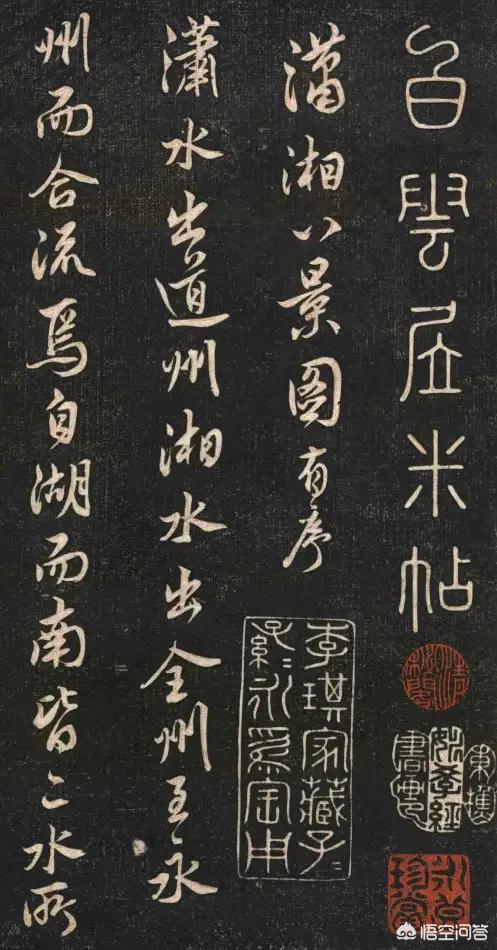 白雲居米帖
瀟湘八景圖有序
瀟水出道州湘水出全州至永
州而合流焉自湖而南皆二水所
李琪家藏子〻
孫〻永爲寶用
悟空问答